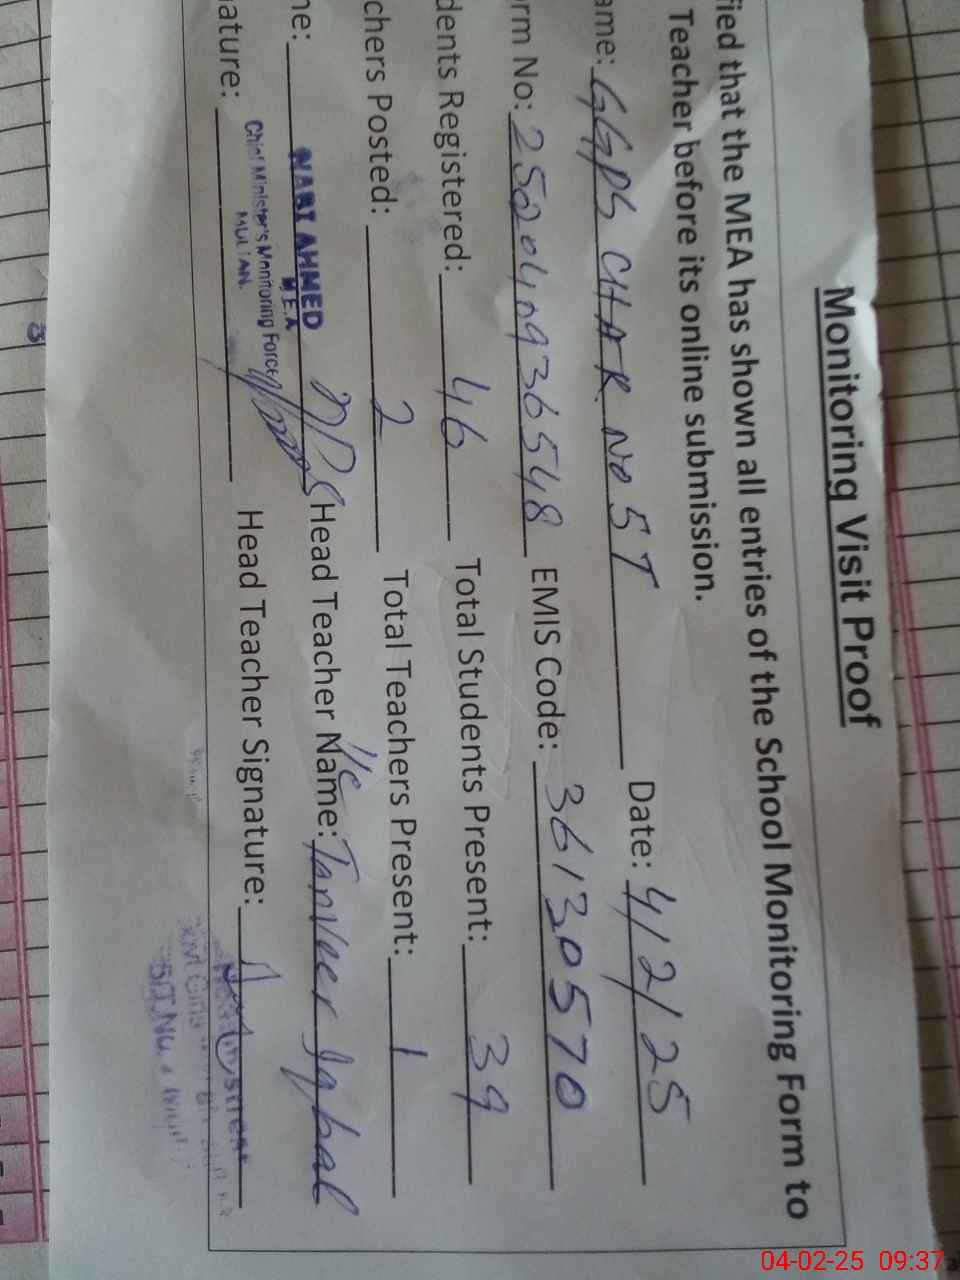 Monitoring Visit Proof
fied that the MEA has shown all entries of the School Monitoring Form to
Teacher before its online submission.
ame: GGPS CHAK NO 5T Date: 4/2/25
orm No: 252040936548 EMIS Code: 36130570
dents Registered: 46 Total Students Present: 39
chers Posted: 2 Total Teachers Present: 1
me: NABI AHMED Head Teacher Name: I/C Tanveer Iqbal
M.E.A
Chief Minister's Monitoring Force
MULTAN.
ature: Head Teacher Signature:
04-02-25 09:37